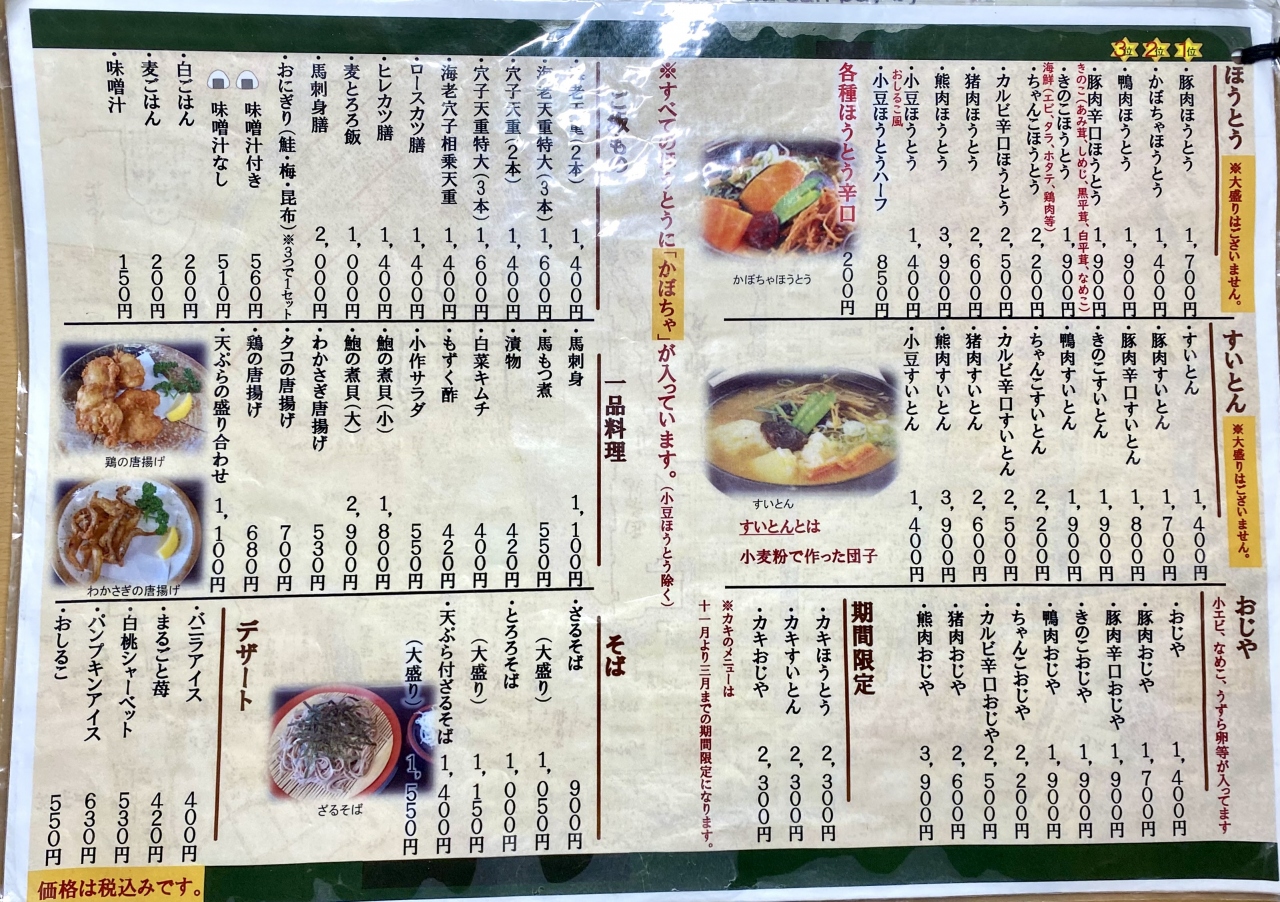 ほうとう
※大盛りはございません。
1位
2位
3位
・豚肉ほうとう 1,700円
・かぼちゃほうとう 1,400円
・鴨肉ほうとう 1,900円
・豚肉辛口ほうとう 1,900円
きのこ(あみ茸、しめじ、黒平茸、白平茸、なめこ)
・きのこほうとう 1,900円
海鮮(エビ、タラ、ホタテ、鶏肉等)
・ちゃんこほうとう 2,200円
・カルビ辛口ほうとう 2,500円
・猪肉ほうとう 2,600円
・熊肉ほうとう 3,900円
・小豆ほうとう 1,400円
おしるこ風
・小豆ほうとうハーフ 850円
各種ほうとう辛口 200円
かぼちゃほうとう
すいとん
※大盛りはございません。
・すいとん 1,400円
・豚肉すいとん 1,700円
・豚肉辛口すいとん 1,800円
・きのこすいとん 1,900円
・鴨肉すいとん 1,900円
・ちゃんこすいとん 2,200円
・カルビ辛口すいとん 2,500円
・猪肉すいとん 2,600円
・熊肉すいとん 3,900円
・小豆すいとん 1,400円
すいとん
すいとんとは
小麦粉で作った団子
おじや
小エビ、なめこ、うずら卵等が入ってます
・おじや 1,400円
・豚肉おじや 1,700円
・豚肉辛口おじや 1,900円
・きのこおじや 1,900円
・鴨肉おじや 1,900円
・ちゃんこおじや 2,200円
・カルビ辛口おじや 2,500円
・猪肉おじや 2,600円
・熊肉おじや 3,900円
期間限定
・カキほうとう 2,300円
・カキすいとん 2,300円
・カキおじや 2,300円
※カキのメニューは
十一月より三月までの期間限定になります。
※すべてのほうとうに「かぼちゃ」が入っています。(小豆ほうとう除く)
ご飯もの
・海老天重(2本) 1,400円
・海老天重特大(3本) 1,600円
・穴子天重(2本) 1,400円
・穴子天重特大(3本) 1,600円
・海老穴子相乗天重 1,400円
・ロースカツ膳 1,400円
・ヒレカツ膳 1,400円
・麦とろろ飯 1,000円
・馬刺身膳 2,000円
・おにぎり(鮭・梅・昆布)※3つで1セット
味噌汁付き 560円
味噌汁なし 510円
・白ごはん 200円
・麦ごはん 200円
・味噌汁 150円
一品料理
・馬刺身 1,100円
・馬もつ煮 550円
・漬物 420円
・白菜キムチ 400円
・もずく酢 420円
・小作サラダ 550円
・鮑の煮貝(小) 1,800円
・鮑の煮貝(大) 2,900円
・わかさぎ唐揚げ 530円
・タコの唐揚げ 700円
・鶏の唐揚げ 680円
・天ぷらの盛り合わせ 1,100円
鶏の唐揚げ
わかさぎの唐揚げ
そば
・ざるそば 900円
(大盛り) 1,050円
・とろろそば 1,000円
(大盛り) 1,150円
・天ぷら付ざるそば 1,400円
(大盛り) 1,550円
ざるそば
デザート
・バニラアイス 400円
・まるごと苺 420円
・白桃シャーベット 530円
・パンプキンアイス 630円
・おしるこ 550円
価格は税込みです。